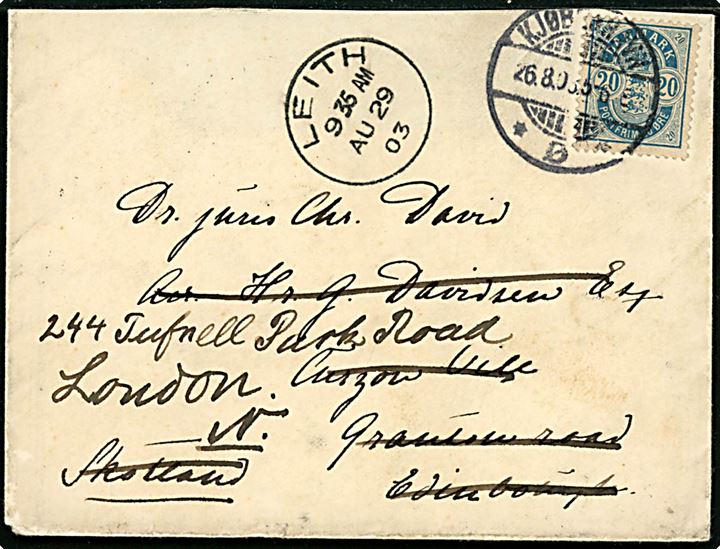 LEITH
9 35 AM
AU 29
03
KJØBENHAVN
26.8.03.5-6
Ø
DANMARK
20 20
20 20
POSTFRIM. 20 ØRE
Dr. juris Chr. David
Hr. G. Davidsen Esq
244 Tufnell Park Road
London.
Curzon Ville
N.
Granton road
Skotland
Edinbourgh.